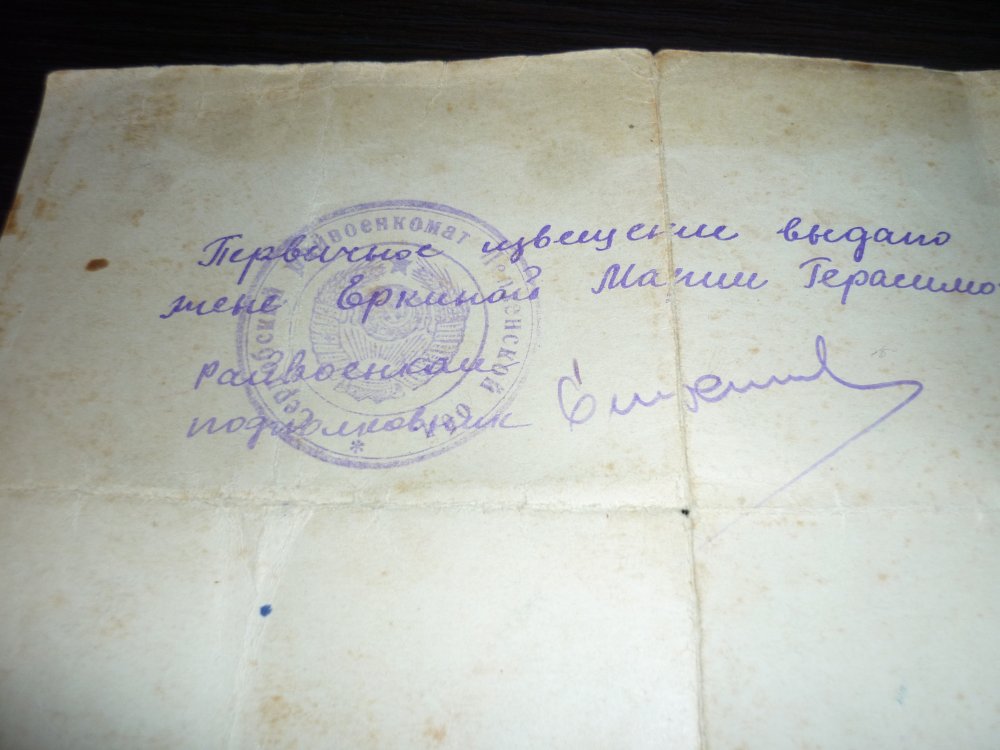 Первичное извещение выдано
жене Еркиной Марии Герасимо
райвоенком
подполковник
райвоенкомат Пензенской